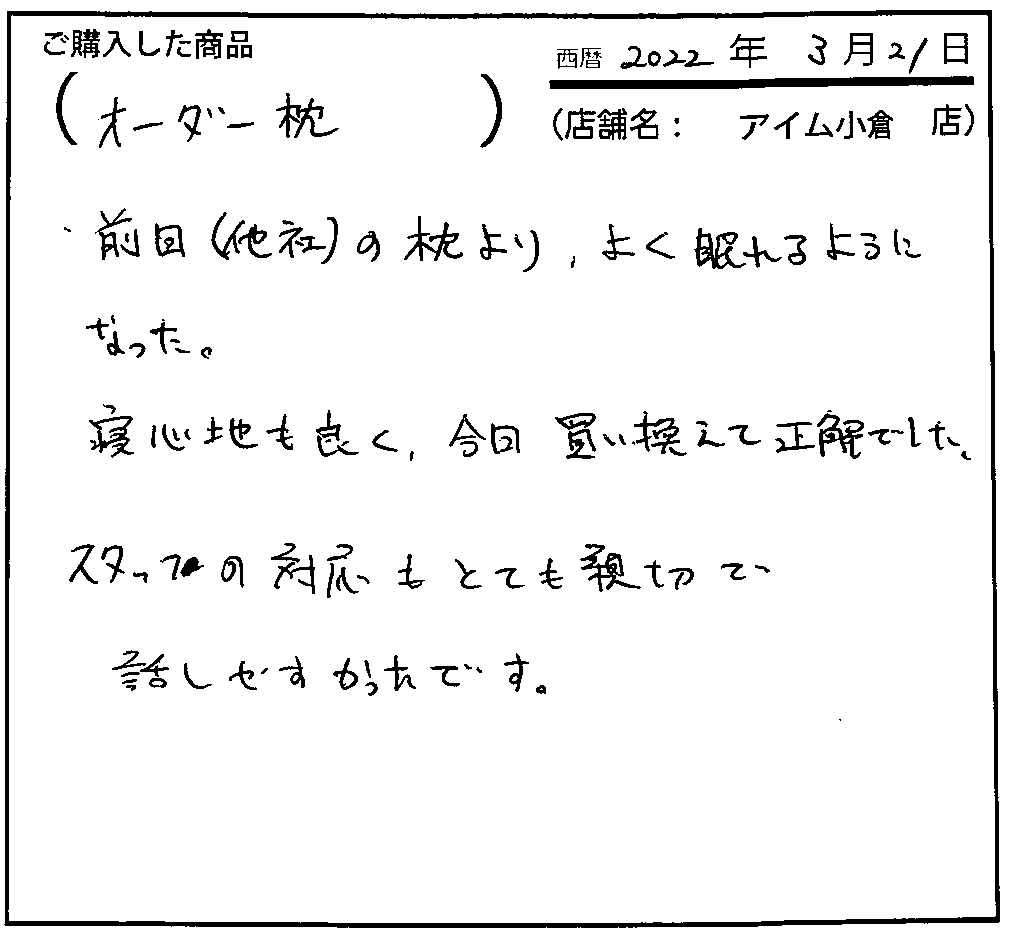 ご購入した商品
西暦 2022 年 3 月 21 日
(オーダー枕)
(店舗名： アイム小倉 店)
前回(他社)の枕より、よく眠れるように
なった。
寝心地も良く、今回買い換えて正解でした。
スタッフの対応もとても親切で
話しやすかったです。